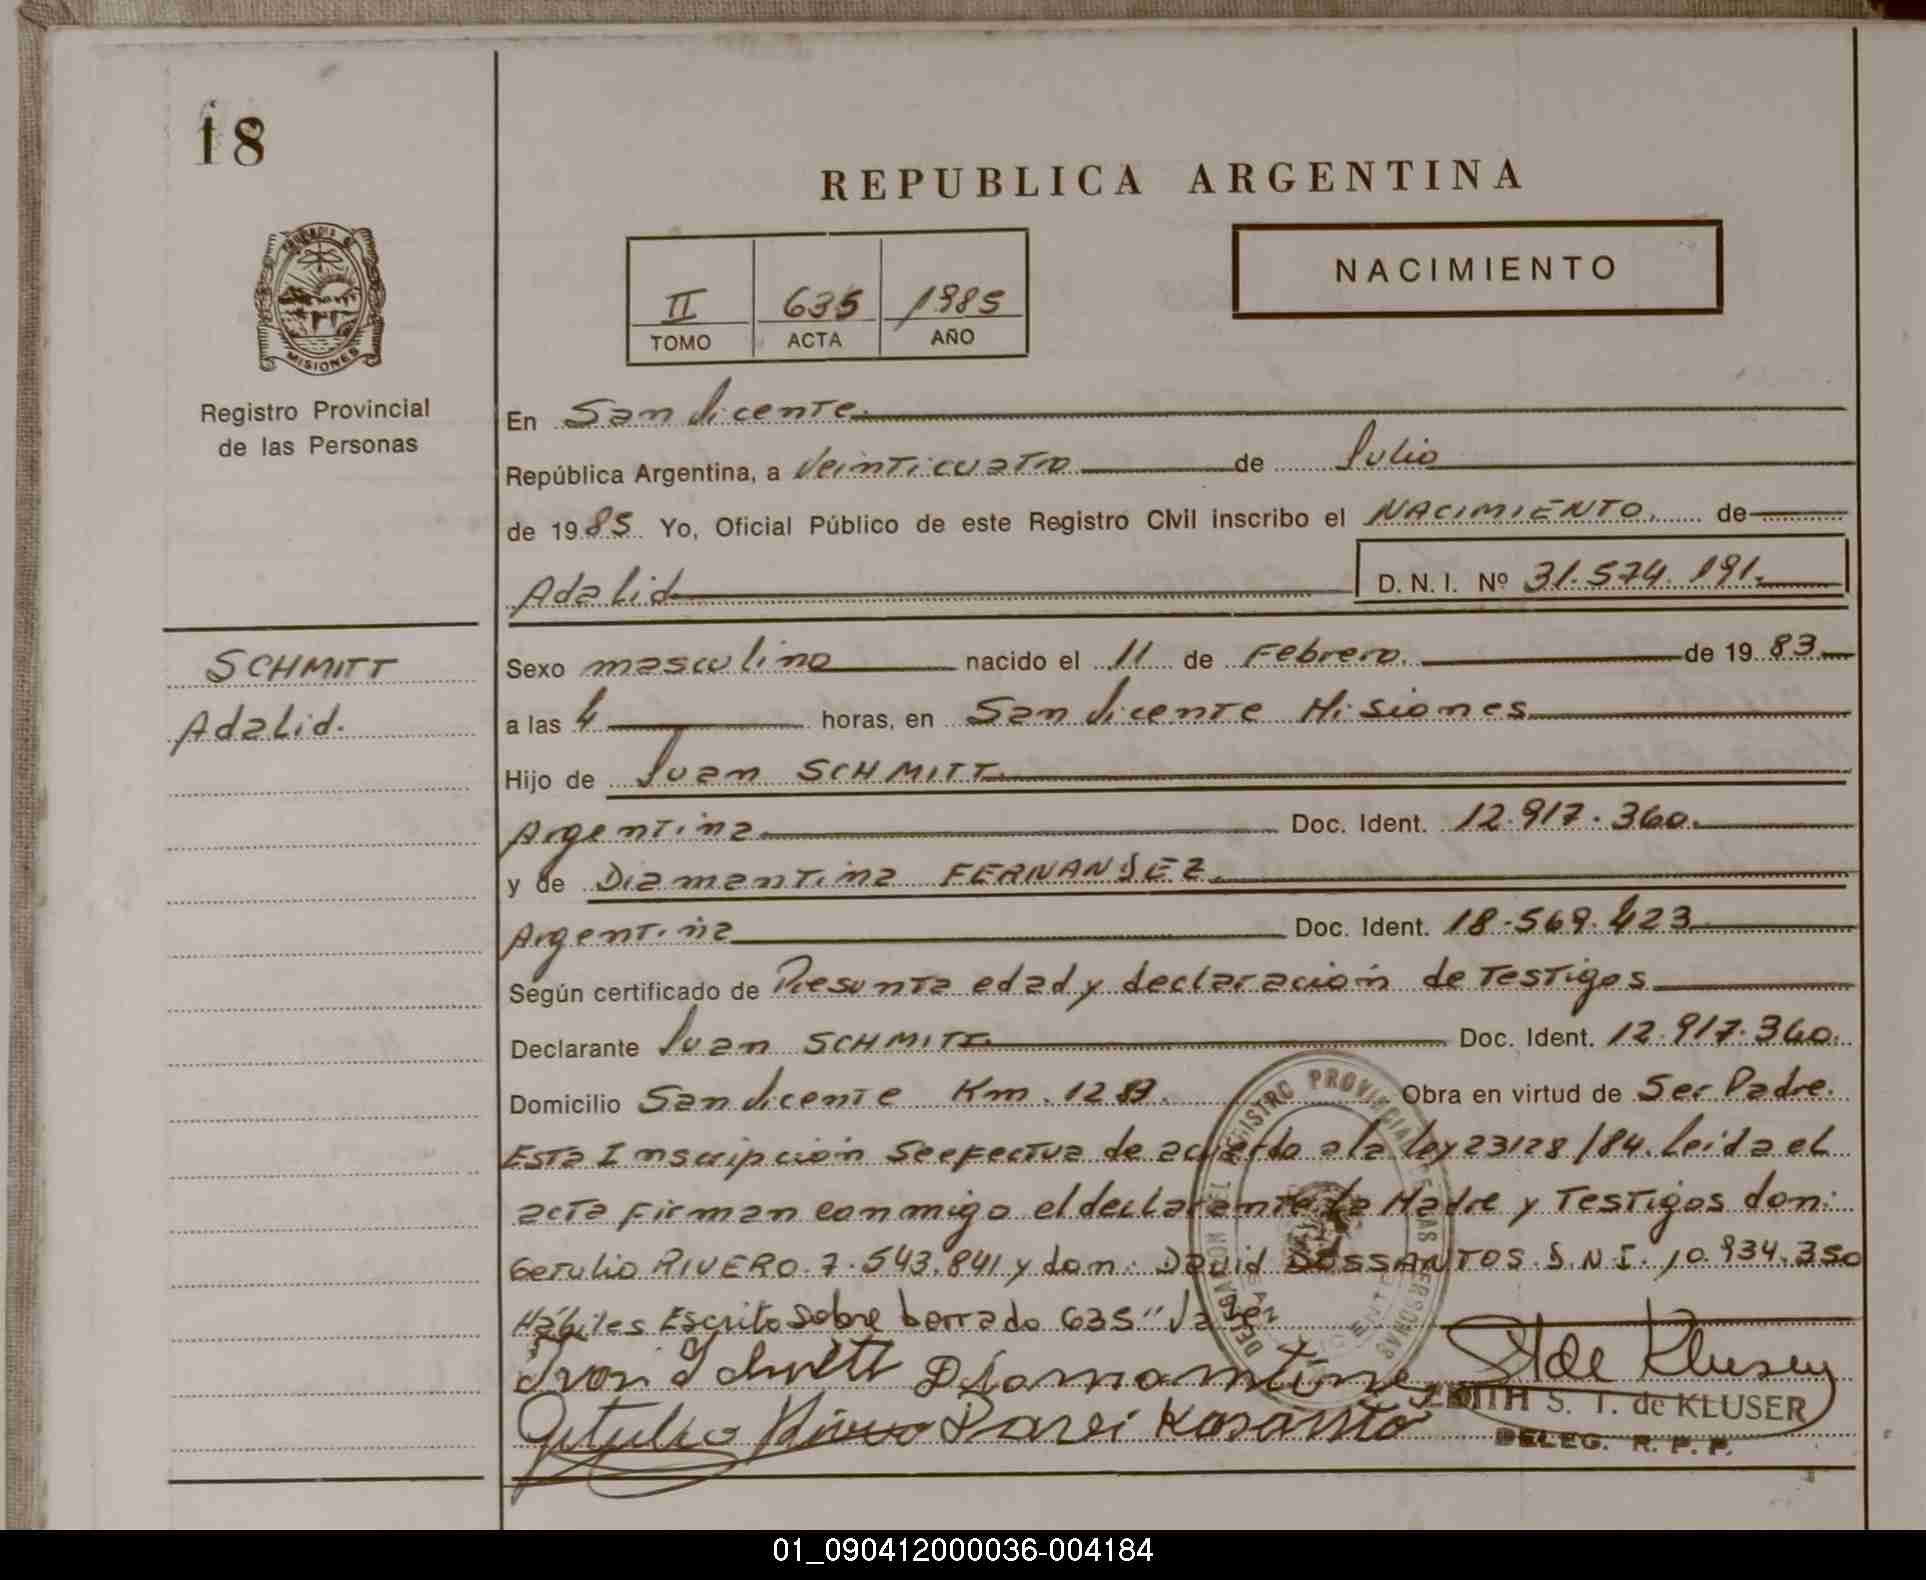 18
REPUBLICA ARGENTINA
NACIMIENTO
II 635 1985
TOMO ACTA AÑO
MISIONES
Registro Provincial
de las Personas
En San Vicente.
República Argentina, a Veinticuatro de Julio
de 1985 Yo, Oficial Público de este Registro Civil inscribo el NACIMIENTO. de
Adalid D. N. I. Nº 31.574.191.
SCHMITT
Adalid.
Sexo masculino nacido el 11 de Febrero. de 1983
a las 4 horas, en San Vicente Misiones
Hijo de Juan SCHMITT.
Argentina Doc. Ident. 12.917.360.
y de Diamantina FERNANDEZ.
Argentina Doc. Ident. 18.569.423
Según certificado de Presunta edad y declaración de Testigos
Declarante Juan SCHMITT. Doc. Ident. 12.917.360.
Domicilio San Vicente Km. Obra en virtud de Ser Padre.
Esta Inscripción Se efectua de acuerdo a la ley 23128/84. Leida el
acta firman conmigo el declarante La Madre y Testigos don:
Getulio RIVERO 7.543.841 y don: David DOSSANTOS D.N.I. 10.934.350
Hábiles Escrito sobre borrado 635" Vale
Diamantina
Getulio
EDITH S. T. de KLUSER
DELEG. R. P. P.
DELEGACION DEL REGISTRO PROVINCIAL DE LAS PERSONAS
SAN VICENTE
01_090412000036-004184